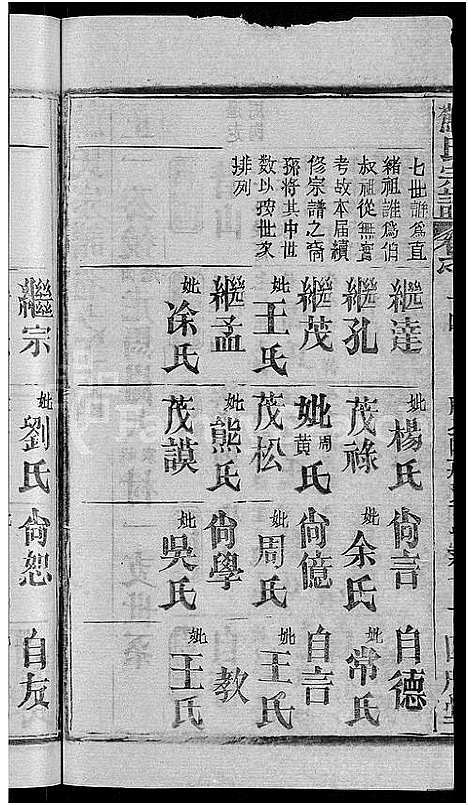 七世誰為直
緒祖誰為偕
叔祖從無實
考故本届續
修宗譜之裔
孫將其中世
數以按世家
排列
繼達 妣楊氏 尙言 自德
繼孔 茂祿 妣余氏 妣常氏
繼茂 妣周黃氏 尙億 自言
妣王氏 茂松 妣周氏 妣王氏
繼孟 妣熊氏 尙學 教
妣凃氏 茂謨 妣吳氏 妣王氏
繼宗 妣劉氏 尙恕 自友